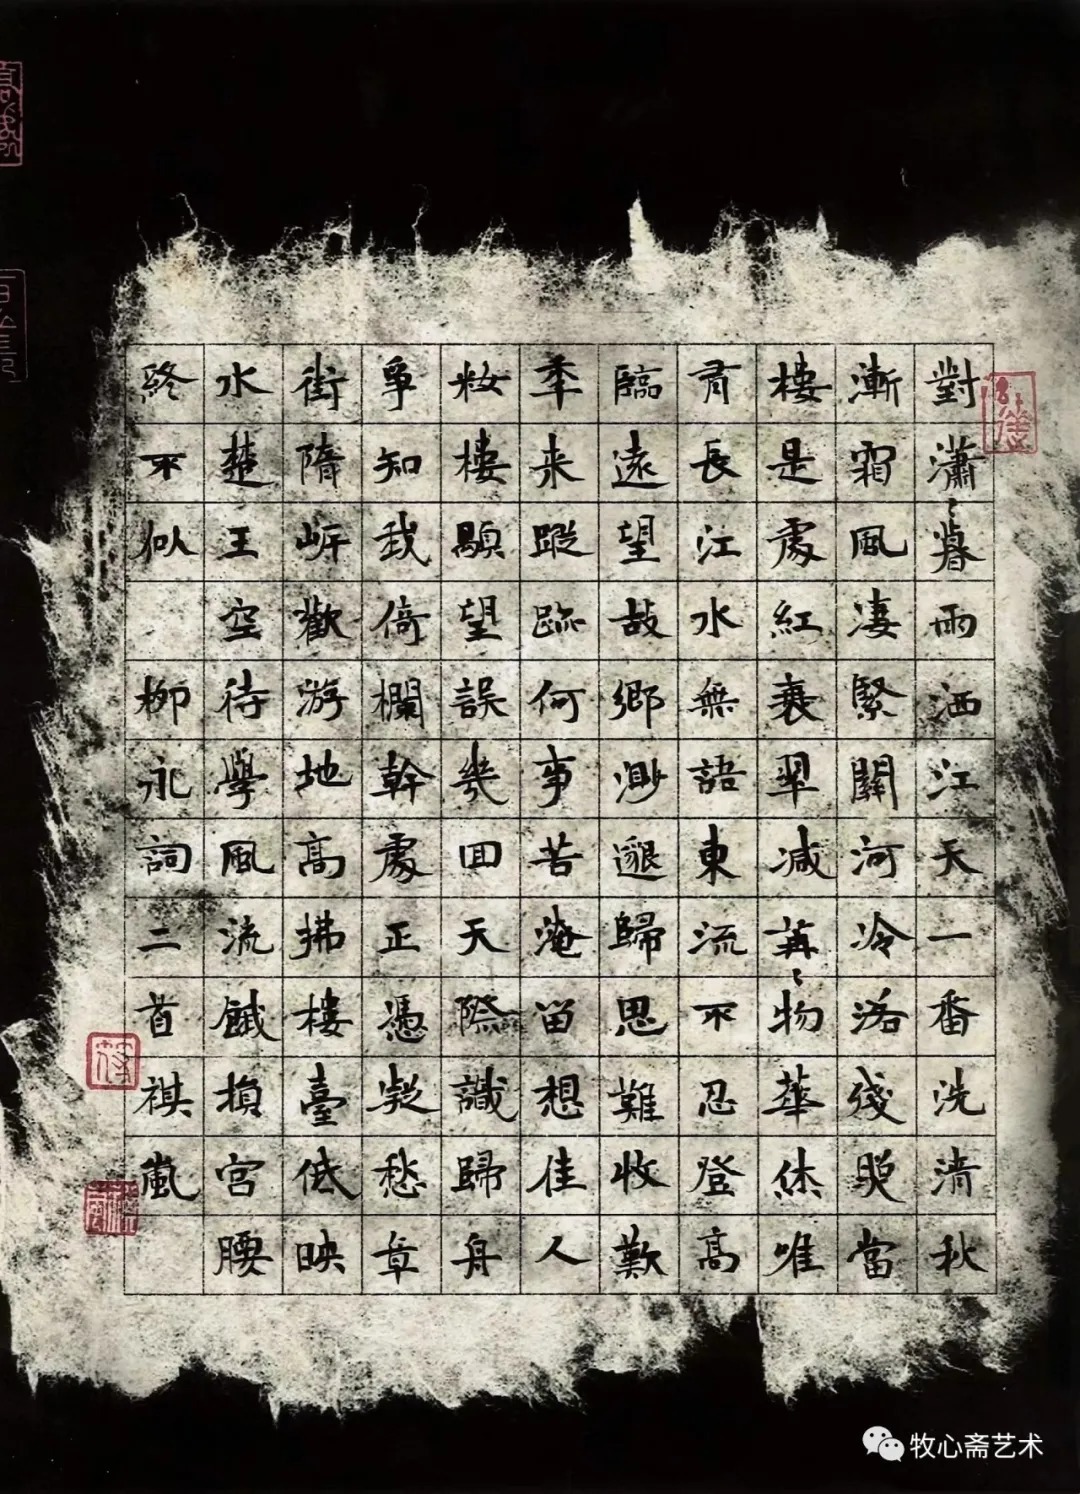 對瀟〻暮雨洒江天一番洗清秋
漸霜風淒緊關河冷落殘照當
樓是處紅衰翠減苒〻物華休唯
有長江水無語東流不忍登高
臨遠望故鄉渺邈歸思難收歎
年来蹤跡何事苦淹留想佳人
妝樓顒望誤幾回天際識歸舟
爭知我倚欄幹處正憑凝愁章
街隋岸歡游地高拂樓臺低映
水楚王空待學風流餓損宮腰
終不似 柳永詞二首祺嵐
牧心斋艺术